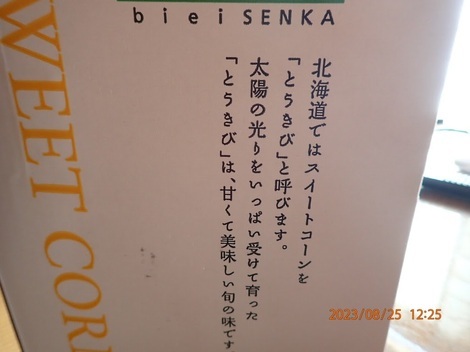 biei SENKA
北海道ではスイートコーンを
「とうきび」と呼びます。
太陽の光りをいっぱい受けて育った
「とうきび」は、甘くて美味しい旬の味です
WEET CORN
2023/08/25 12:25